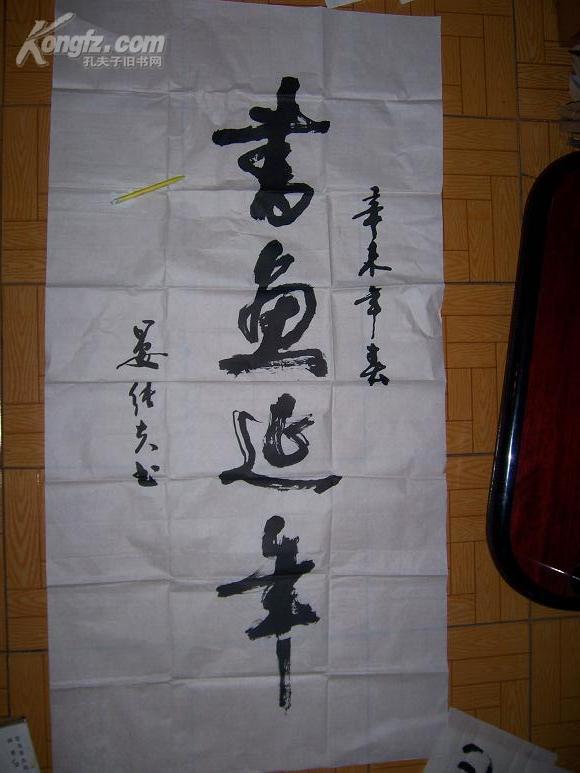 Kongfz.com
孔夫子旧书网
辛未年春
書画延年
晏继夫书